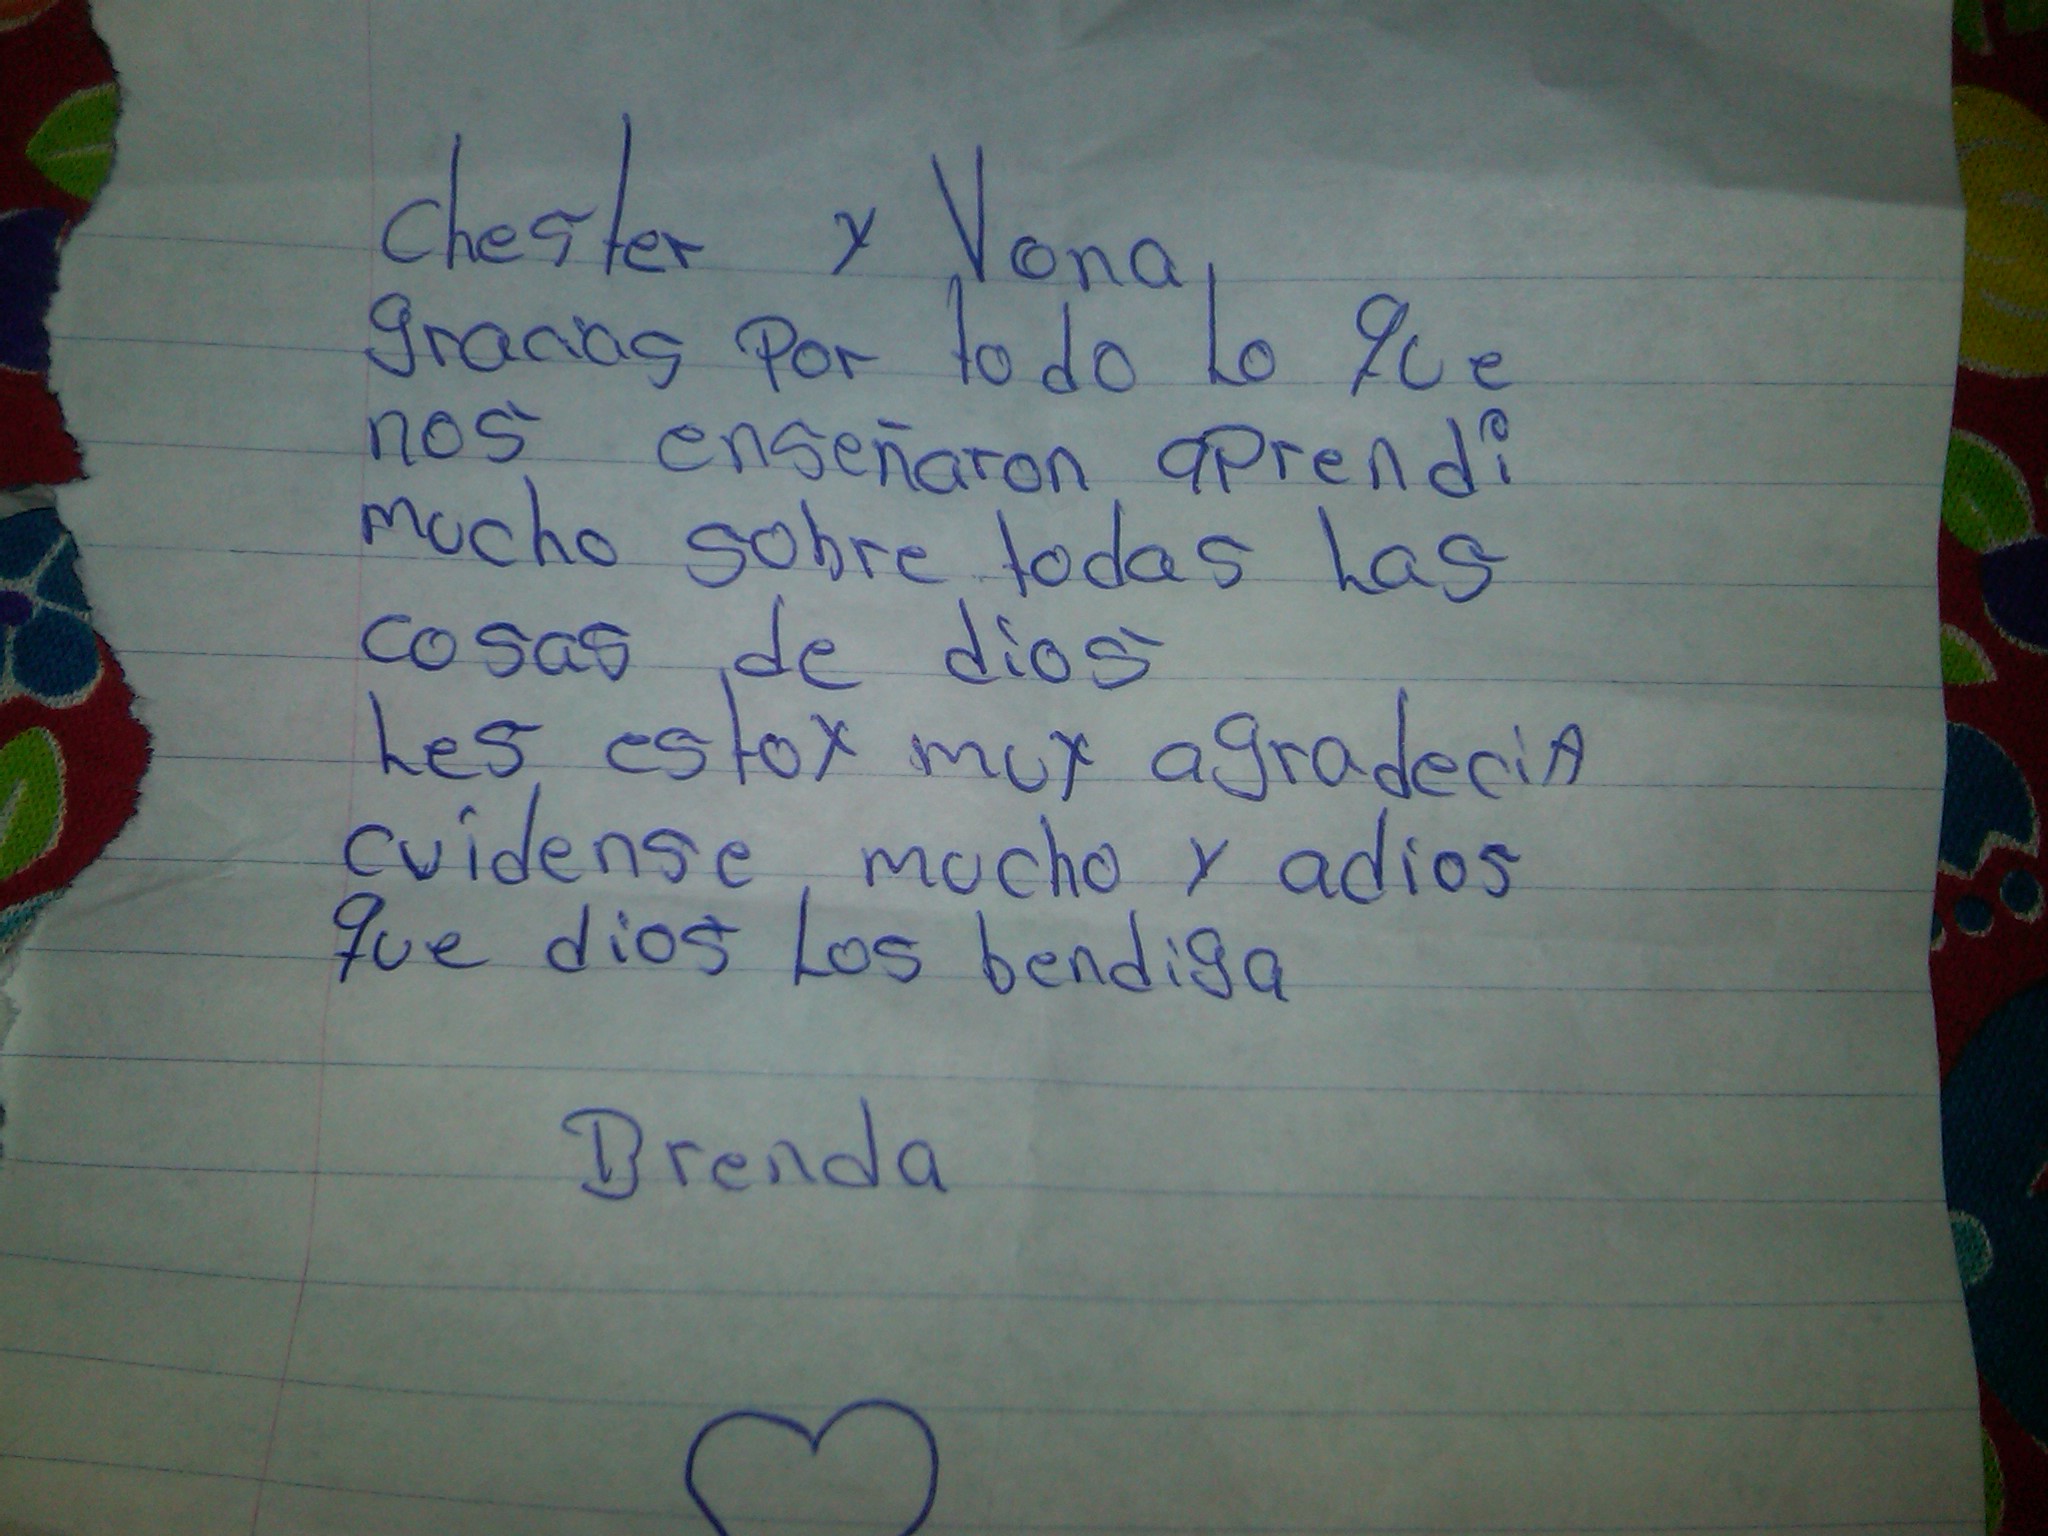 chester y Vona
gracias por todo lo que
nos enseñaron aprendi
mucho sobre todas las
cosas de dios
Les estoy muy agradeciA
cuidense mucho y adios
que dios los bendiga
Brenda